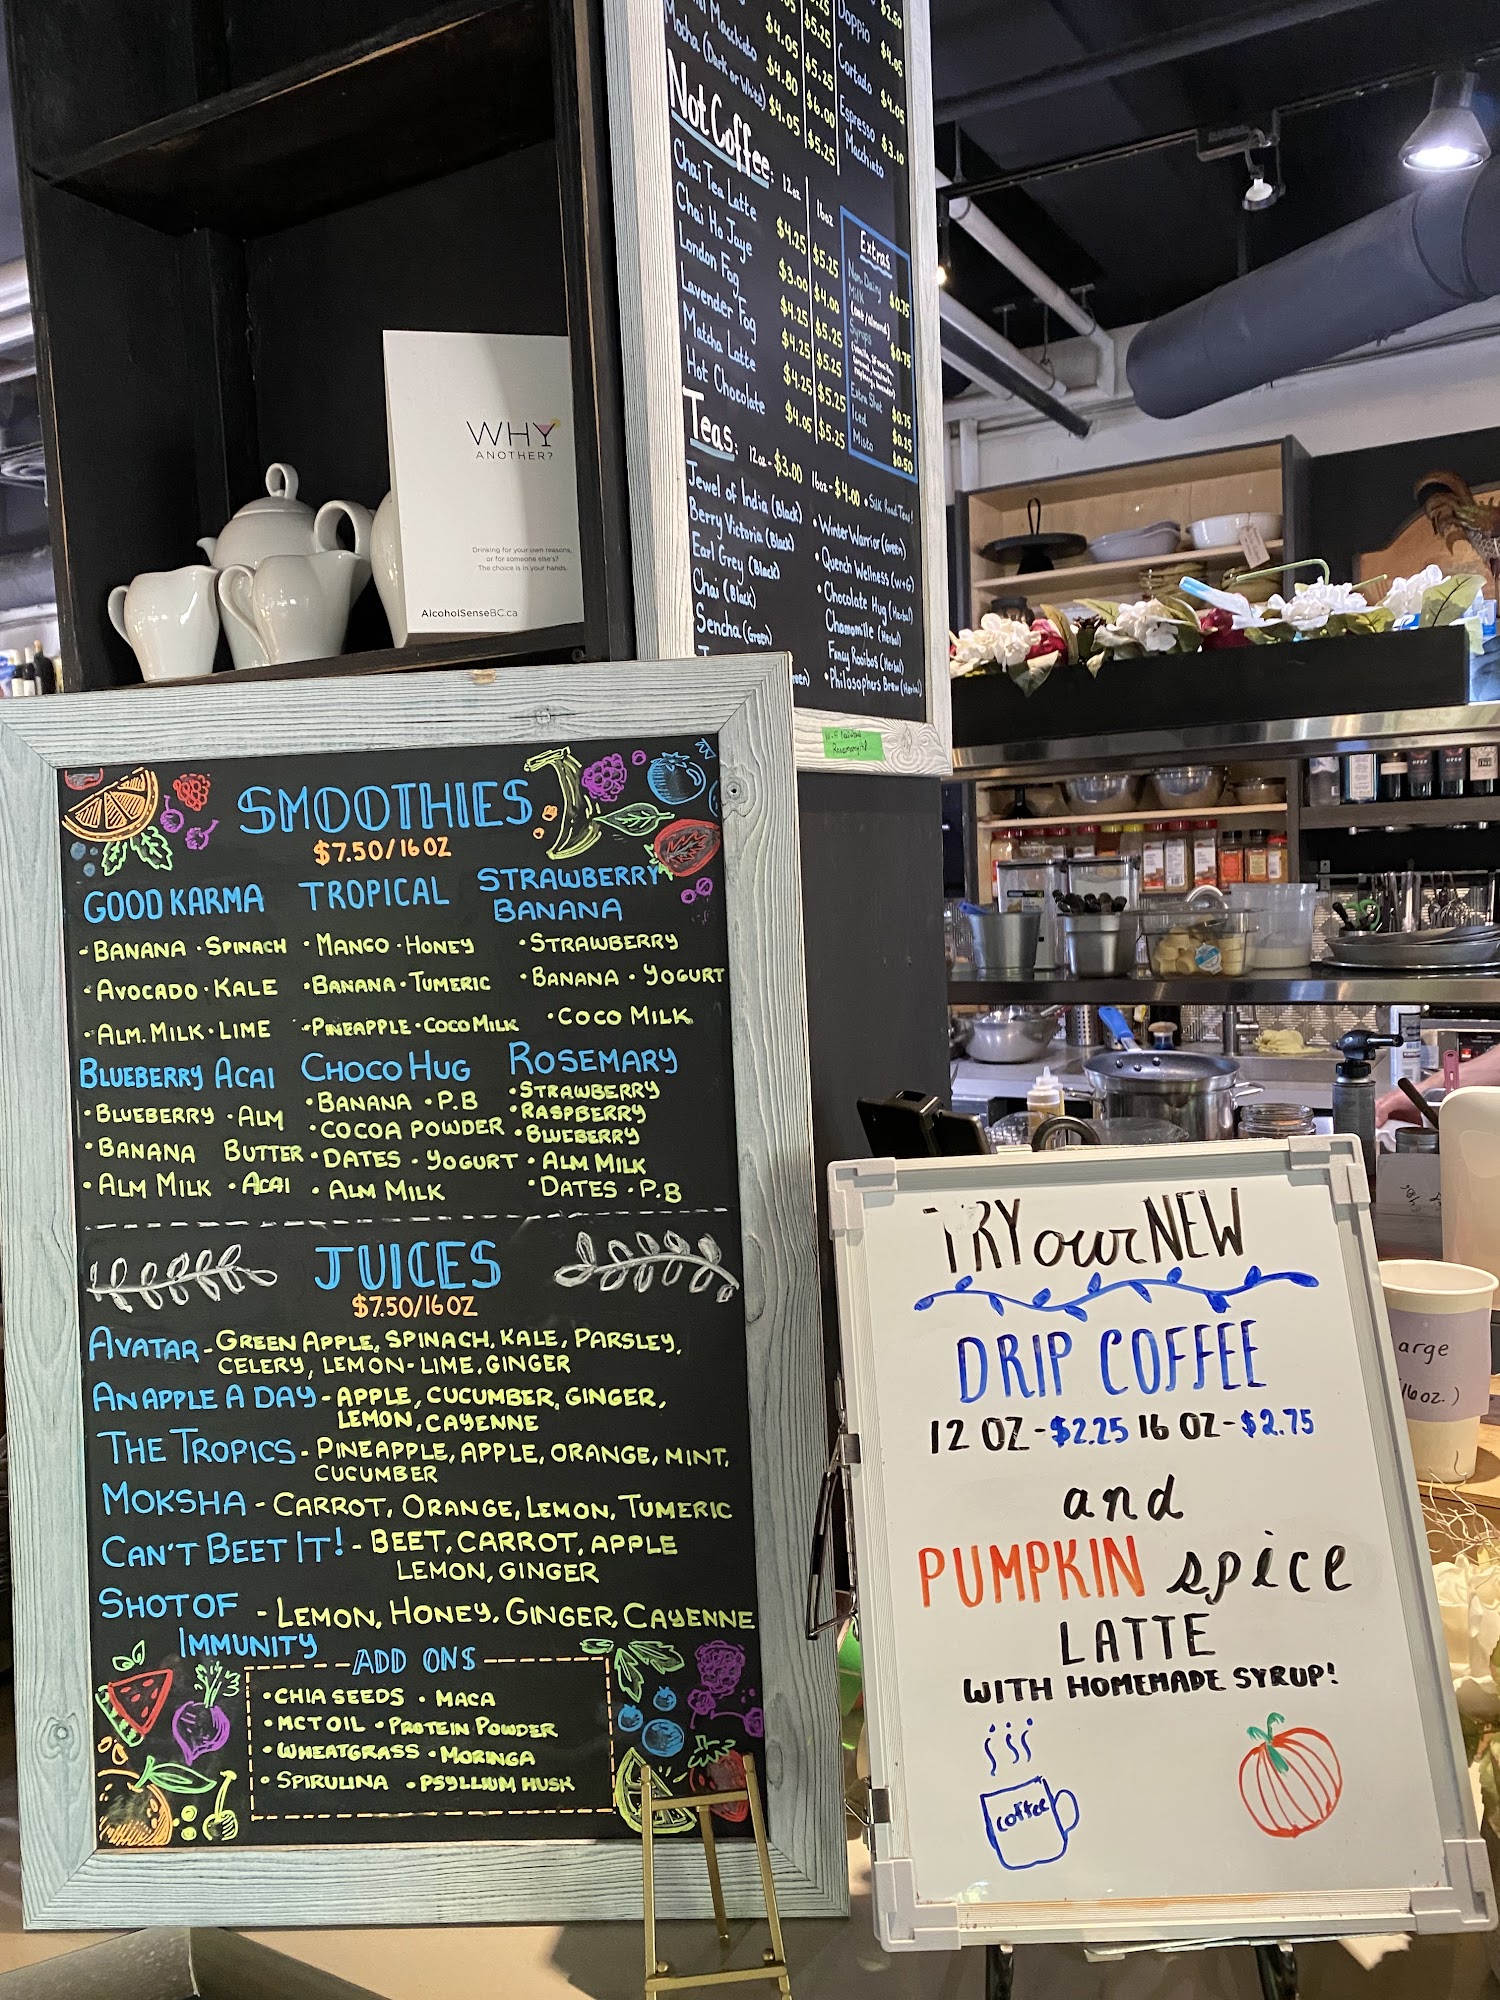 Macchiato $4.80 $6.00
Mocha (Dark or White) $4.05 $5.25
Doppio $4.05
Cortado $4.05
Espresso $3.10
Macchiato
Not Coffee: 12oz 16oz
Chai Tea Latte $4.25 $5.25
Chai Ho Jaye $3.00 $4.00
London Fog $4.25 $5.25
Lavender Fog $4.25 $5.25
Matcha Latte $4.25 $5.25
Hot Chocolate $4.05 $5.25
Extras
Non Dairy $0.75
Milk
(oat/almond)
Syrups $0.75
Extra Shot $0.75
Iced $0.25
Misto $0.50
Teas: 12oz-$3.00 16oz-$4.00 • Silk Road Teas!
Jewel of India (Black)
Berry Victoria (Black)
Earl Grey (Black)
Chai (Black)
Sencha (Green)
• Winter Warrior (Green)
• Quench Wellness (W+G)
• Chocolate Hug (Herbal)
Chamomile (Herbal)
Fancy Rooibos (Herbal)
• Philosophers Brew (Herbal)
WHY
ANOTHER?
Drinking for your own reasons,
or for someone else's?
The choice is in your hands.
AlcoholSenseBC.ca
SMOOTHIES
$7.50/16 OZ
GOOD KARMA
• BANANA • SPINACH
• AVOCADO • KALE
• ALM. MILK • LIME
TROPICAL
• MANGO • HONEY
• BANANA • TUMERIC
• PINEAPPLE • COCO MILK
STRAWBERRY
BANANA
• STRAWBERRY
• BANANA • YOGURT
• COCO MILK
BLUEBERRY ACAI
• BLUEBERRY • ALM
• BANANA BUTTER
• ALM MILK • ACAI
CHOCO HUG
• BANANA • P.B
• COCOA POWDER
• DATES • YOGURT
• ALM MILK
ROSEMARY
• STRAWBERRY
• RASPBERRY
• BLUEBERRY
• ALM MILK
• DATES • P.B
JUICES
$7.50/16 OZ
AVATAR - GREEN APPLE, SPINACH, KALE, PARSLEY,
CELERY, LEMON-LIME, GINGER
AN APPLE A DAY - APPLE, CUCUMBER, GINGER,
LEMON, CAYENNE
THE TROPICS - PINEAPPLE, APPLE, ORANGE, MINT,
CUCUMBER
MOKSHA - CARROT, ORANGE, LEMON, TUMERIC
CAN'T BEET IT! - BEET, CARROT, APPLE
LEMON, GINGER
SHOT OF - LEMON, HONEY, GINGER, CAYENNE
IMMUNITY
ADD ONS
• CHIA SEEDS • MACA
• MCT OIL • PROTEIN POWDER
• WHEATGRASS • MORINGA
• SPIRULINA • PSYLLIUM HUSK
TRY our NEW
DRIP COFFEE
12 OZ-$2.25 16 OZ-$2.75
and
PUMPKIN spice
LATTE
WITH HOMEMADE SYRUP!
coffee
arge
(16oz.)